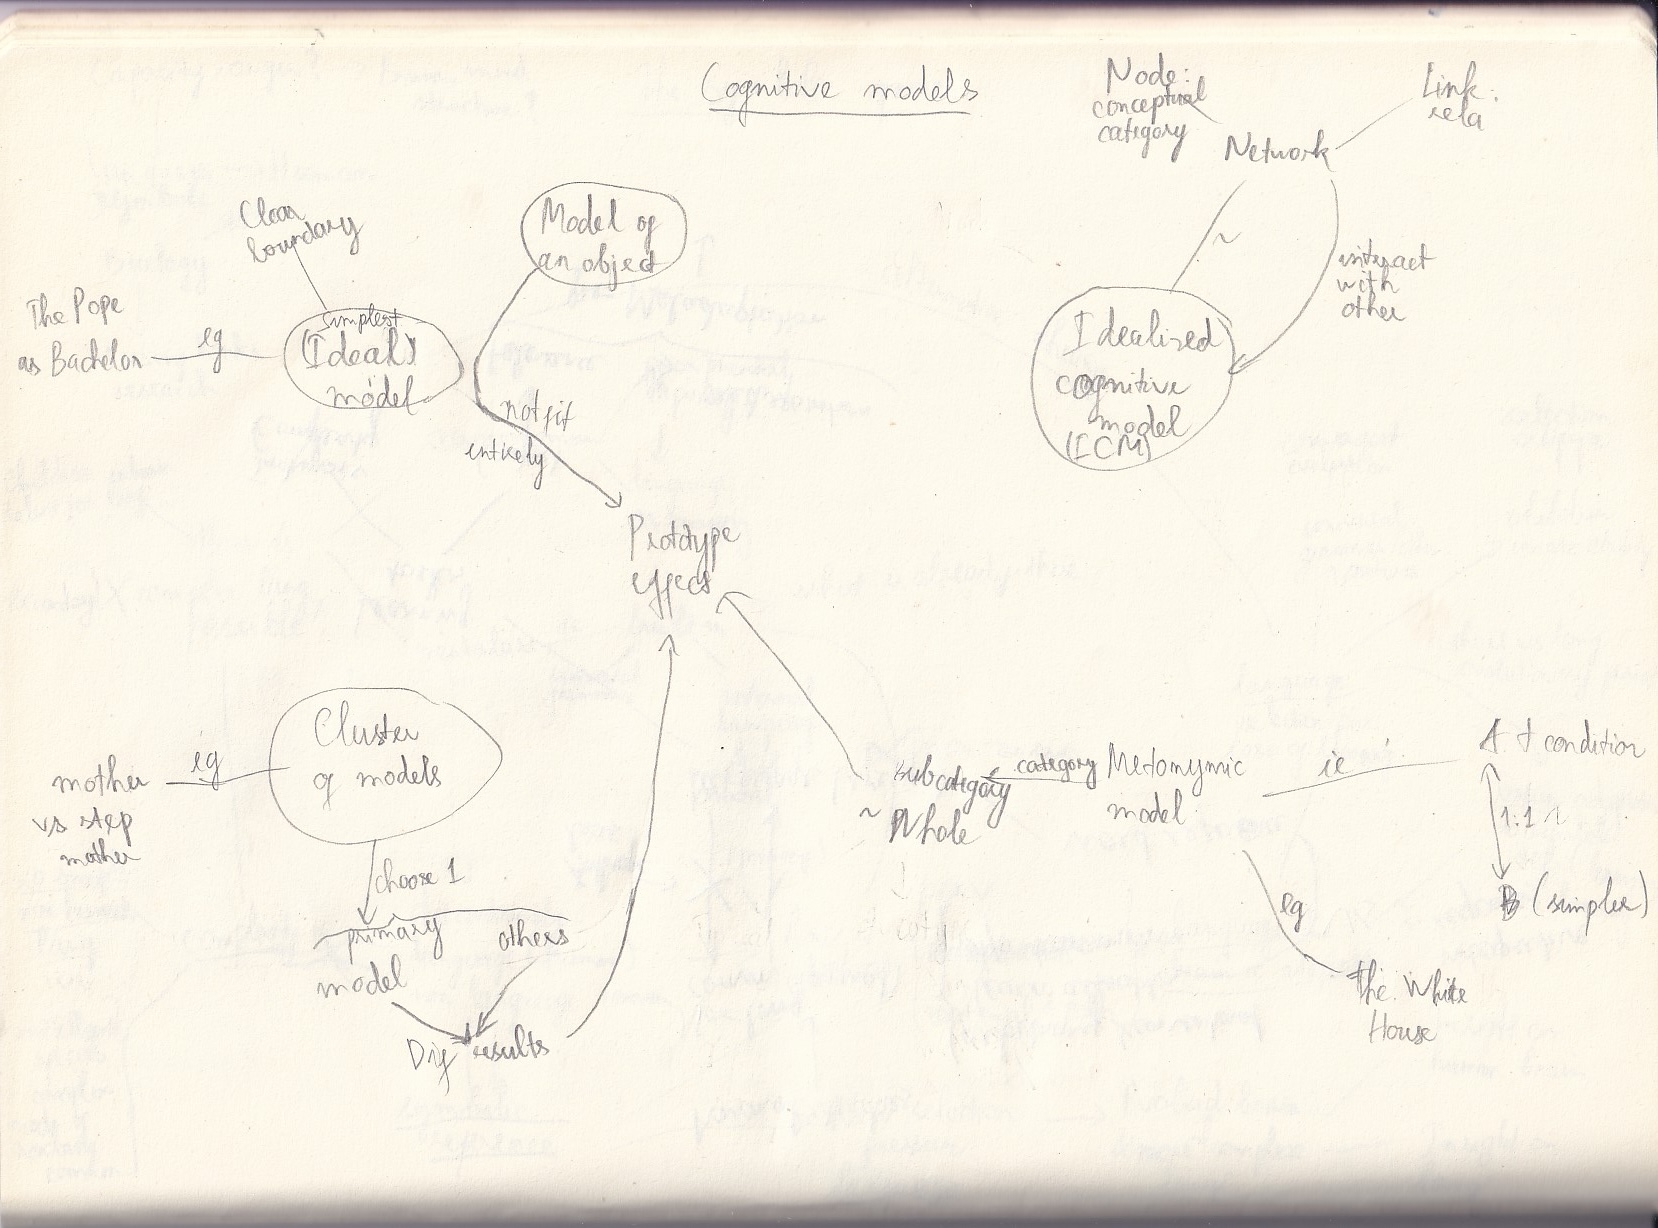 Cognitive models
Node:
conceptual
category
Link:
rela
Network
~
interact
with
other
Idealized
cognitive
model
(ICM)
Clear
boundary
Model of
an object
The Pope
as Bachelor
eg
simplest
(Ideal)
model
not fit
entirely
Prototype
effects
Cluster
of models
eg
mother
vs step
mother
choose 1
primary
model
others
Dif results
subcategory
~ Whole
category
Metomymic
model
ie
A + condition
1:1
B (simpler)
eg
The White
House